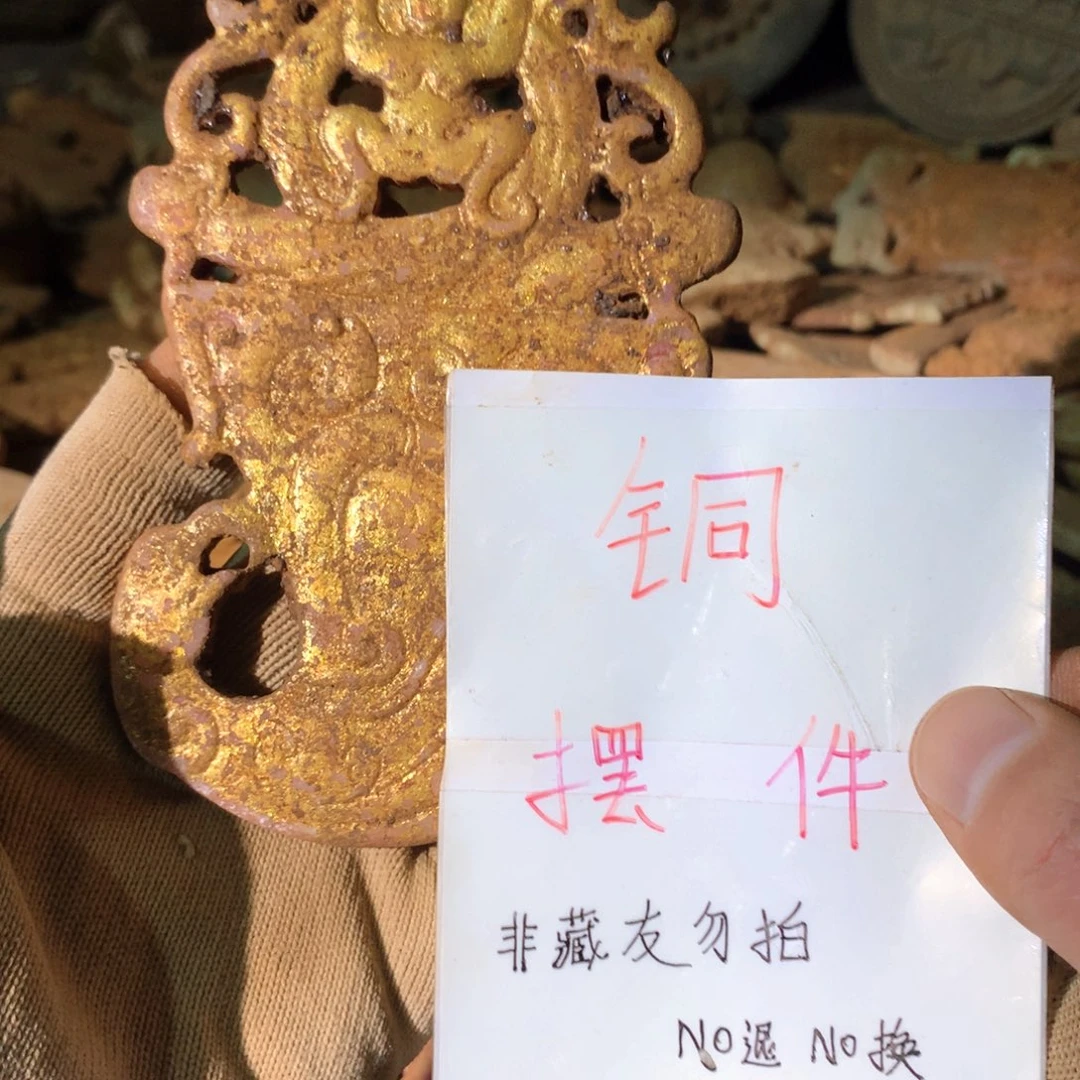 铜
摆 件
非藏友勿拍
NO退 NO换